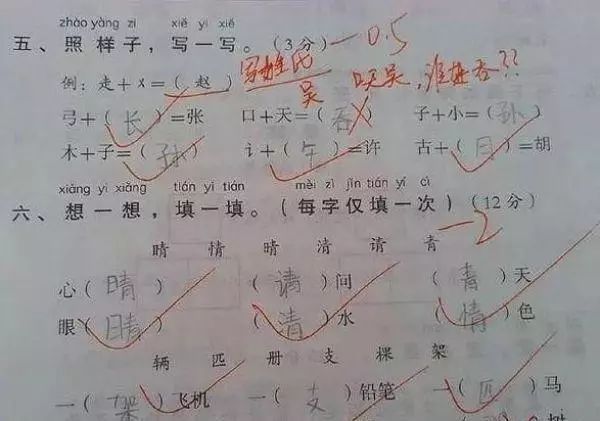 zhào yàng zi xiě yi xiě
五、照样子，写一写。(3分) -0.5
例：走+㐅=(赵) 写姓氏 口天吴，谁姓吞??
吴
弓+(长)=张 口+天=(吞) 子+小=(孙)
木+子=( ) 讠+(午)=许 古+(月)=胡
xiǎng yi xiǎng tián yi tián měi zì jǐn tián yí cì
六、想一想，填一填。(每字仅填一次)(12分)
晴 情 睛 清 请 青 -2
心(晴) (请)问 (青)天
眼(睛) (清)水 (情)色
辆 匹 册 支 棵 架
一(架)飞机 一(支)铅笔 一(匹)马